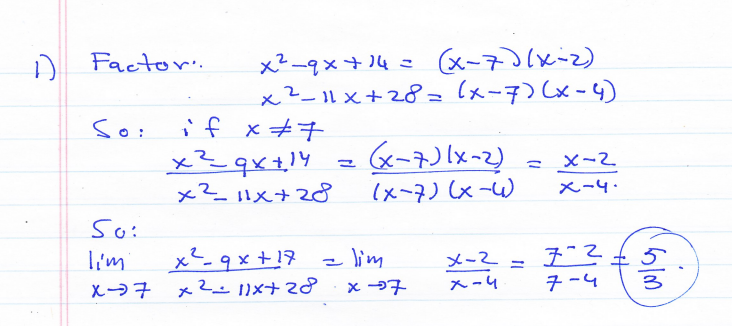 1) Factor: x²-9x+14 = (x-7)(x-2)
x²-11x+28 = (x-7)(x-4)
So: if x≠7
x²-9x+14 / x²-11x+28 = (x-7)(x-2) / (x-7)(x-4) = x-2 / x-4.
So:
lim x→7 x²-9x+17 / x²-11x+28 = lim x→7 x-2 / x-4 = 7-2 / 7-4 = 5/3.